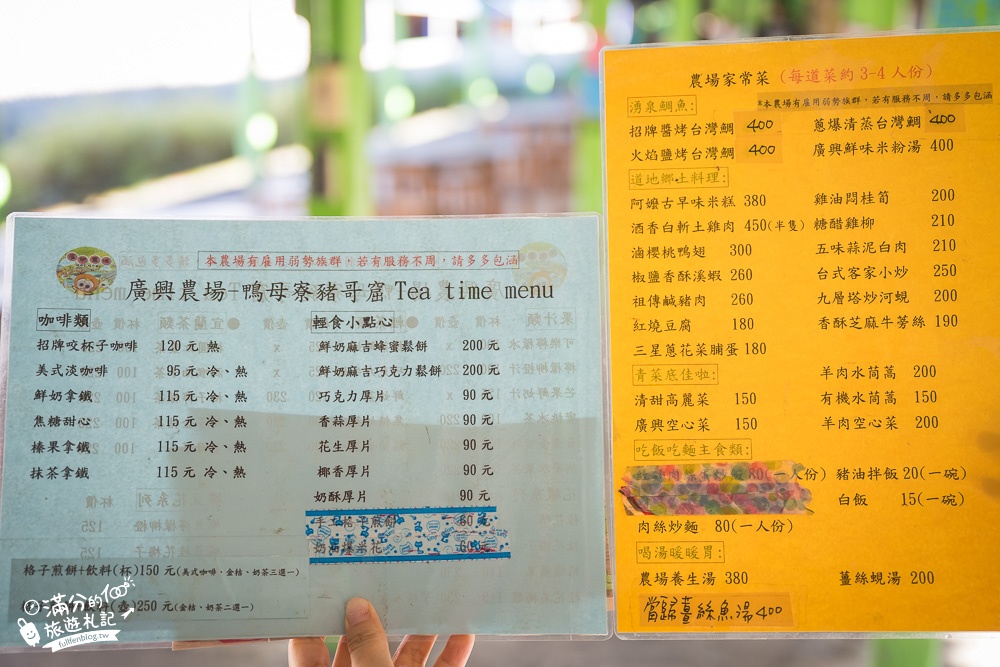 本農場有雇用弱勢族群,若有服務不周,請多多包涵
廣興農場-鴨母寮豬哥窟 Tea time menu
咖啡類
招牌咬杯子咖啡 120元 熱
美式淡咖啡 95元 冷、熱
鮮奶拿鐵 115元 冷、熱
焦糖甜心 115元 冷、熱
榛果拿鐵 115元 冷、熱
抹茶拿鐵 115元 冷、熱
輕食小點心
鮮奶麻吉蜂蜜鬆餅 200元
鮮奶麻吉巧克力鬆餅 200元
巧克力厚片 90元
香蒜厚片 90元
花生厚片 90元
椰香厚片 90元
奶酥厚片 90元
手工格子煎餅 60元
60元
格子煎餅+飲料(杯)150元(美式咖啡,金桔、奶茶三選一)
(壺)250元(金桔、奶茶二選一)
滿分的
旅遊札記
fullfenblog.tw
農場家常菜(每道菜約3-4人份)
湧泉鯛魚:
*本農場有雇用弱勢族群,若有服務不周,請多多包涵
招牌醬烤台灣鯛 400 蔥爆清蒸台灣鯛 400
火焰鹽烤台灣鯛 400 廣興鮮味米粉湯 400
道地鄉土料理:
阿嬤古早味米糕 380 雞油悶桂筍 200
酒香白斬土雞肉 450(半隻) 糖醋雞柳 210
滷櫻桃鴨翅 300 五味蒜泥白肉 210
椒鹽香酥溪蝦 260 台式客家小炒 250
祖傳鹹豬肉 260 九層塔炒河蜆 200
紅燒豆腐 180 香酥芝麻牛蒡絲 190
三星蔥花菜脯蛋 180
青菜底佳啦:
羊肉水筒蒿 200
清甜高麗菜 150 有機水筒蒿 150
廣興空心菜 150 羊肉空心菜 200
吃飯吃麵主食類:
80(一人份) 豬油拌飯 20(一碗)
白飯 15(一碗)
肉絲炒麵 80(一人份)
喝湯暖暖胃:
農場養生湯 380 薑絲蜆湯 200
當歸薑絲魚湯 400